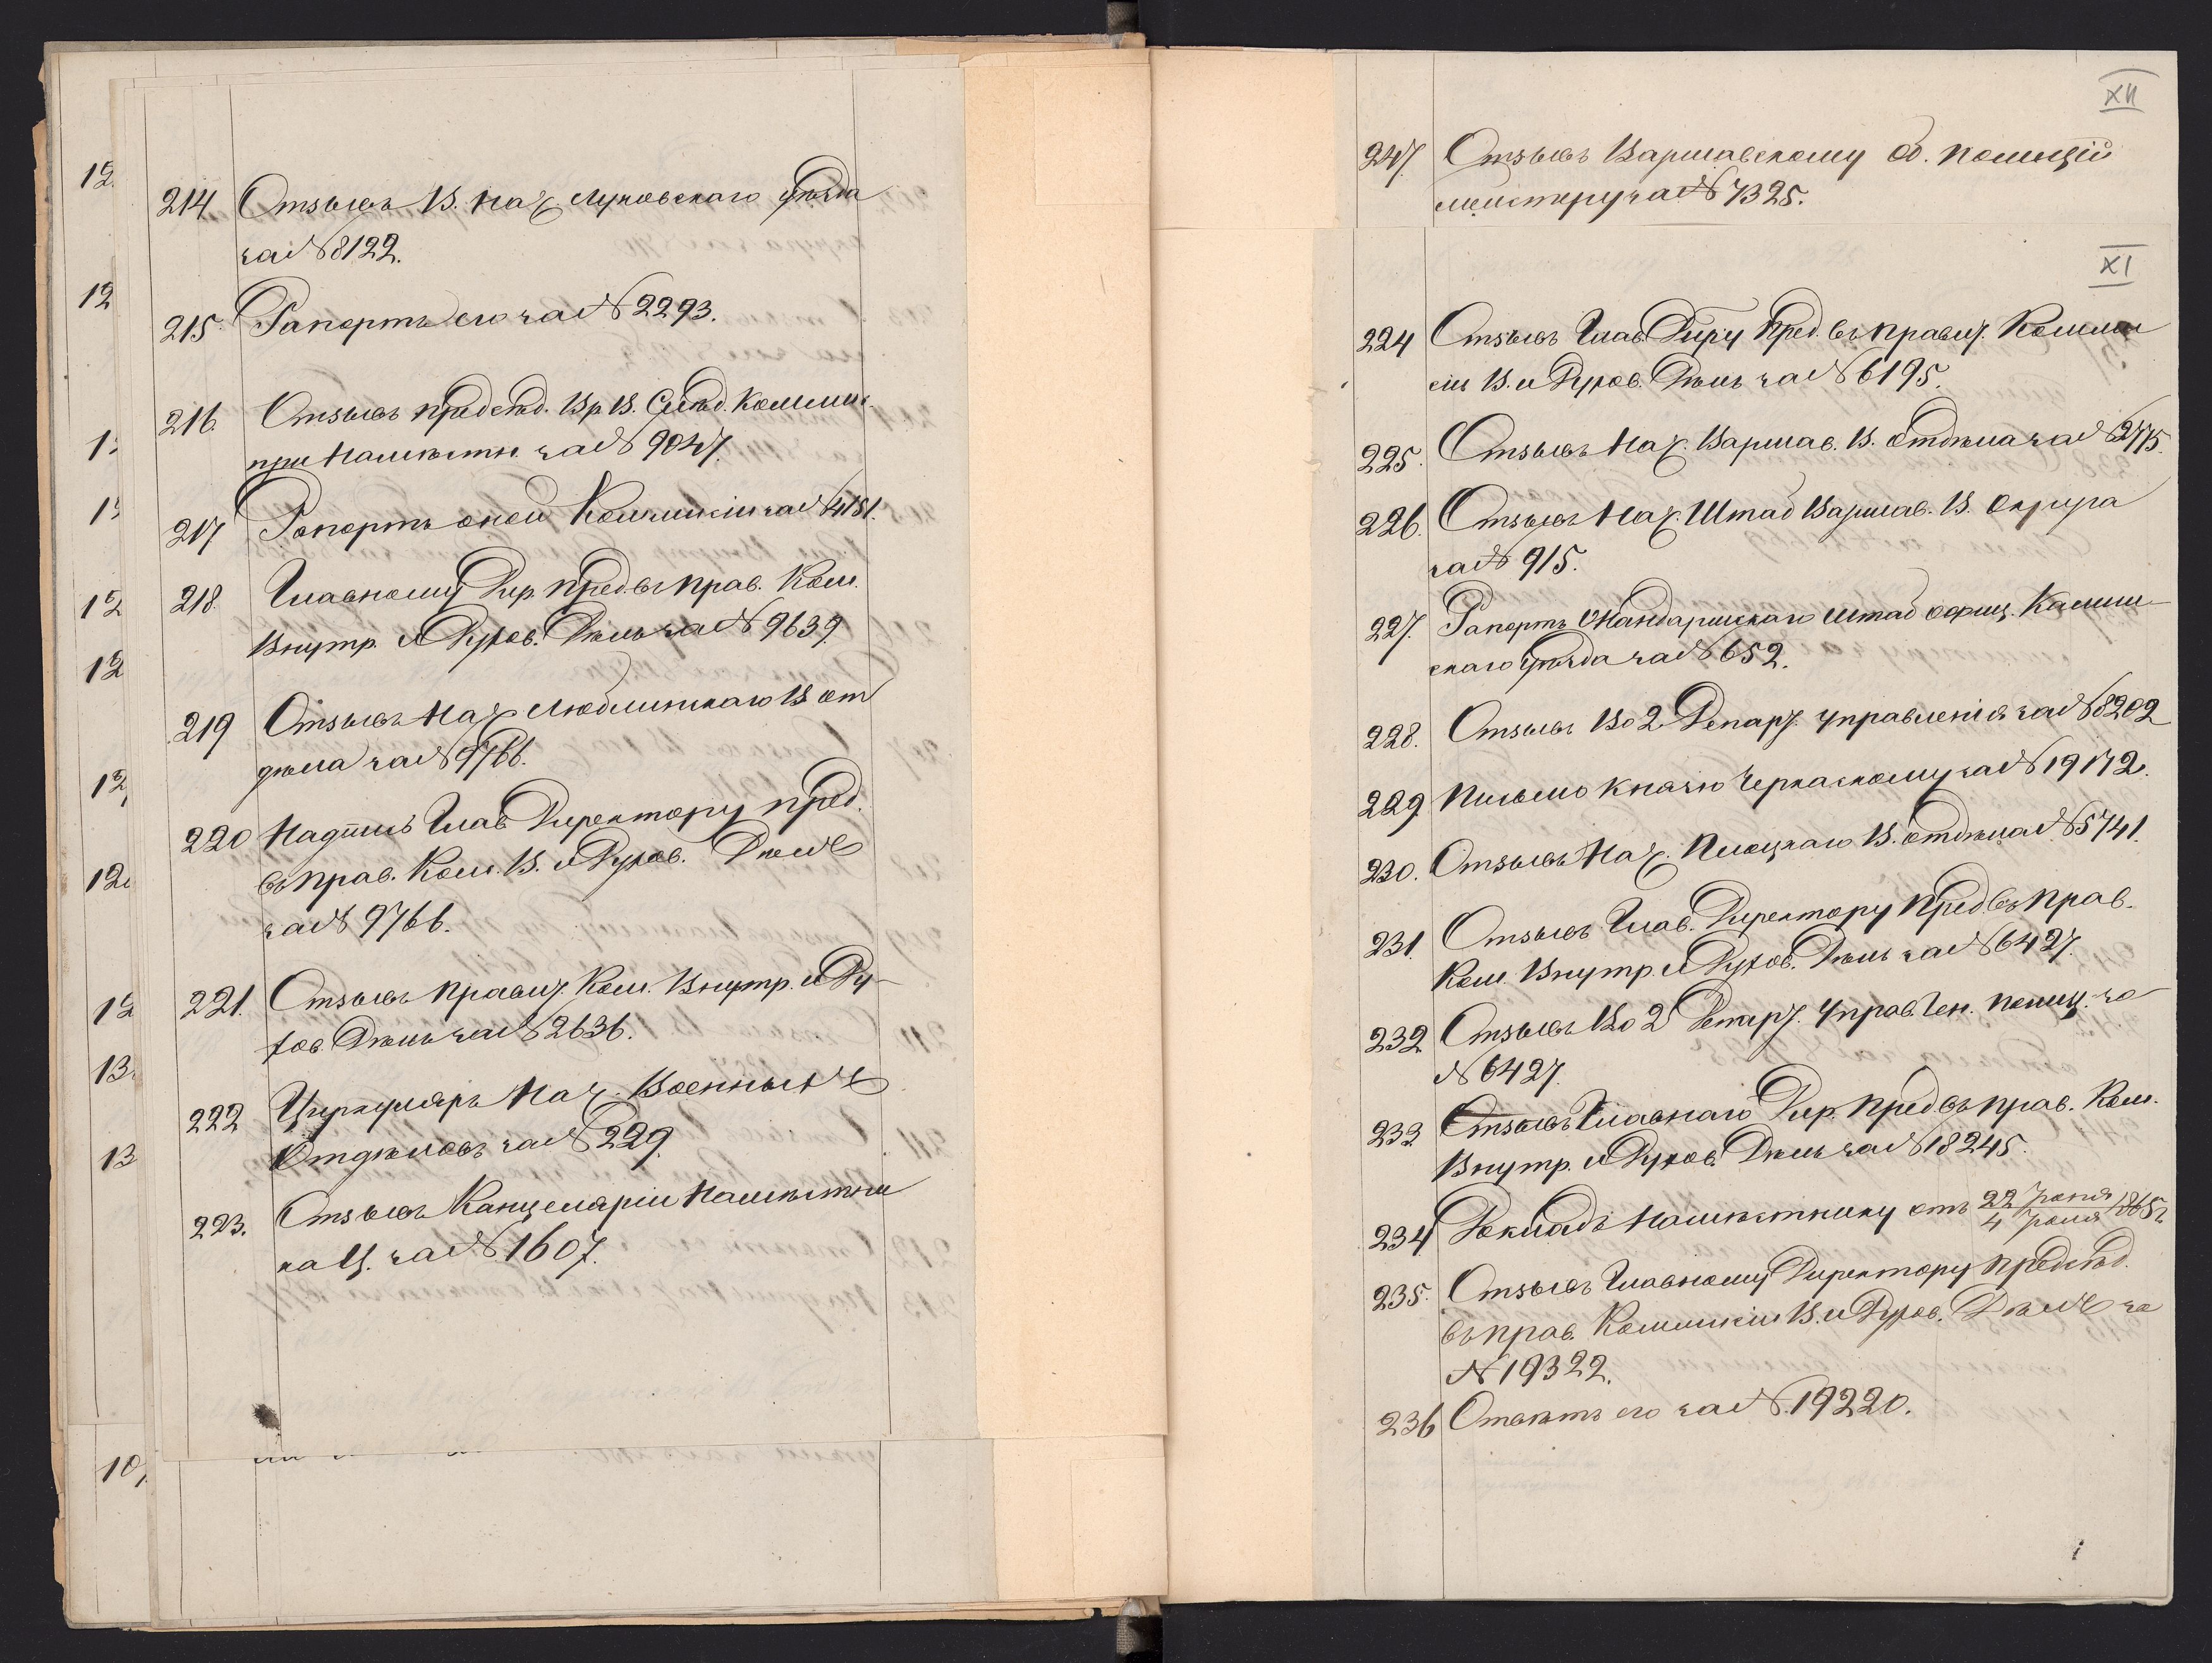 12
12
1
1
12
12
12
12
12
13
13
10
214 Отзывъ В. Нач. Луковскаго уѣзда
за № 8122.
215. Рапортъ его за № 2293.
216. Отзывъ предсѣд. Вр. В. Слѣд. Коммис.
при Намѣстн. за № 9047.
217 Рапортъ оной Коммисіи за № 4181.
218. Главному Дир. пред. въ прав. Ком.
Внутр. и Духов. Дѣлъ за № 9639.
219 Отзывъ Нач. Люблинскаго В от
дѣла за № 9766.
220 Надпись Глав Директору пред.
въ прав. Ком. В. и Духов. Дѣлъ
за № 9766.
221. Отзывъ правит. Ком. Внутр. и Ду-
хов. Дѣлъ за № 2636.
222 Циркуляръ Нач. Военныхъ
Отдѣловъ за № 229.
223. Отзывъ Канцеляріи Намѣстни
ка Ц. за № 1607.
XII
247. Отзывъ Варшавскому Об. полиціи
мейстеру за № 7325.
XI
224 Отзывъ Глав. Дирү пред. въ правит. Комми
сіи В. и Духов. Дѣлъ за № 6195.
225. Отзывъ Нач. Варшав. В. отдѣла за № 2775.
226. Отзывъ Нач. Штаб Варшав. В. Округа
за № 915.
227. Рапортъ Жандармскаго штаб офиц. Калиш-
скаго уѣзда за № 652.
228. Отзывъ Во 2 Департ. управленія за № 8202
229. Письмо князю Черкаскому за № 19172.
230. Отзывъ Нач. Плоцкаго В. отдѣла № 5741.
231. Отзывъ Глав. Директору пред. въ прав.
Ком. Внутр. и Духов. Дѣлъ за № 6427.
232 Отзывъ Во 2 Департ. Управ. Ген. полиц. за
№ 6427.
233 Отзывъ Главнаго Дир. пред. въ прав. Ком.
Внутр. и Духов. Дѣлъ за № 18245.
234 Докладъ Намѣстнику отъ 22 Іюня / 4 Іюля 1865 г.
235. Отзывъ Главному Директору предсѣд.
въ прав. Коммисіи В. и Духов. Дѣлъ за
№ 19322.
236 Отвѣтъ его за №. 19220.